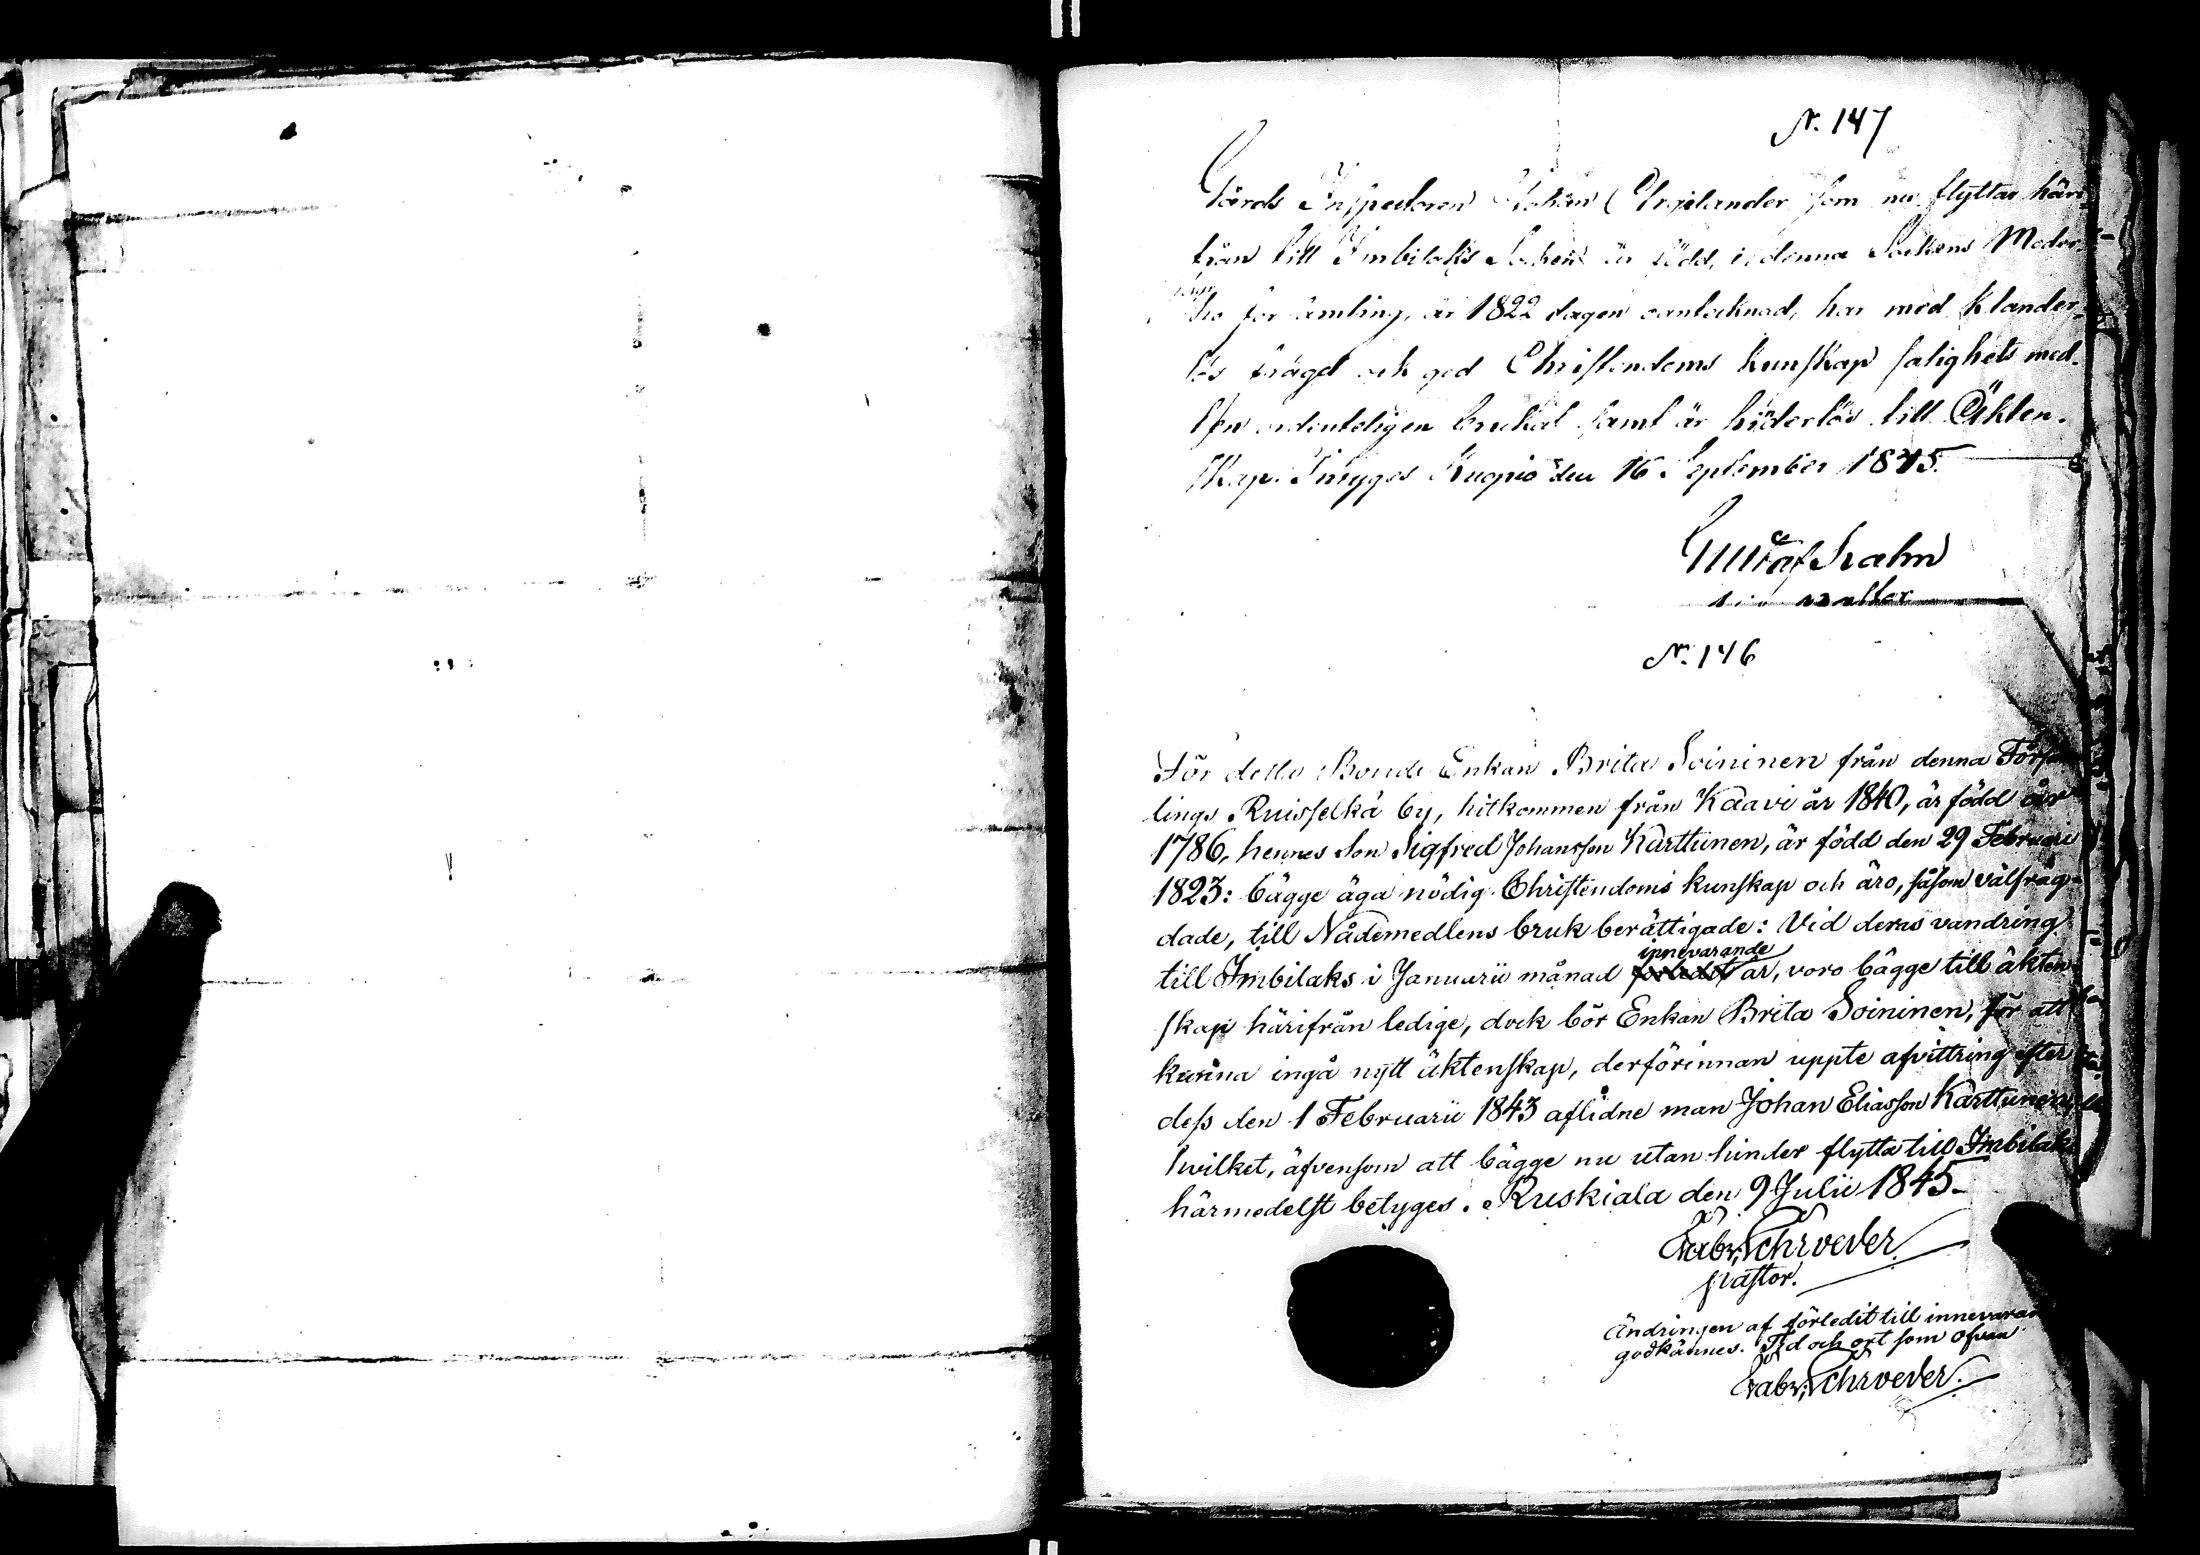 N. 147
Gårds Inspectoren Johan som nu flyttar häri-
från till Imbilaks Socken är född, i denna Sockens Moder
för samling, år 1822 dagen oantecknad, har med klander-
lös frägd och god Christendoms kunskap salighets med-
len ordenteligen brukat samt är hinderlös till Äkten-
skap. Intygas Kuopio den 16 September 1845.
N. 146
För detta Bonde Enkan Brita Soininen från denna Försam
lings Ruisselkä by, hitkommen från Kaavi år 1840, är född år
1786, hennes Son Sigfred Johansson Karttunen, är född den 29 Februari
1823: bägge äga nödig Christendoms kunskap och äro, såsom välfräg-
dade, till Nådemedlens bruk berättigade: Vid deras vandring
innevarande
till Imbilaks i Januarii månad förledit år, voro bägge till äkten-
skap härifrån ledige, dock bör Enkan Brita Soininen, för att
kunna ingå nytt äktenskap, derförinnan uppte afvittring efter
dess den 1 Februarii 1843 aflidne man Johan Eliasson Karttunen,
hvilket, äfvensom att bägge nu utan hinder flytta till Imbilaks
härmedelst betyges. Ruskiala den 9 Julii 1845.
Gabr. Schroeder
pastor.
Ändringen af förledit till innevarande
godkännes. Tid och ort som ofvan
Gabr. Schroeder.